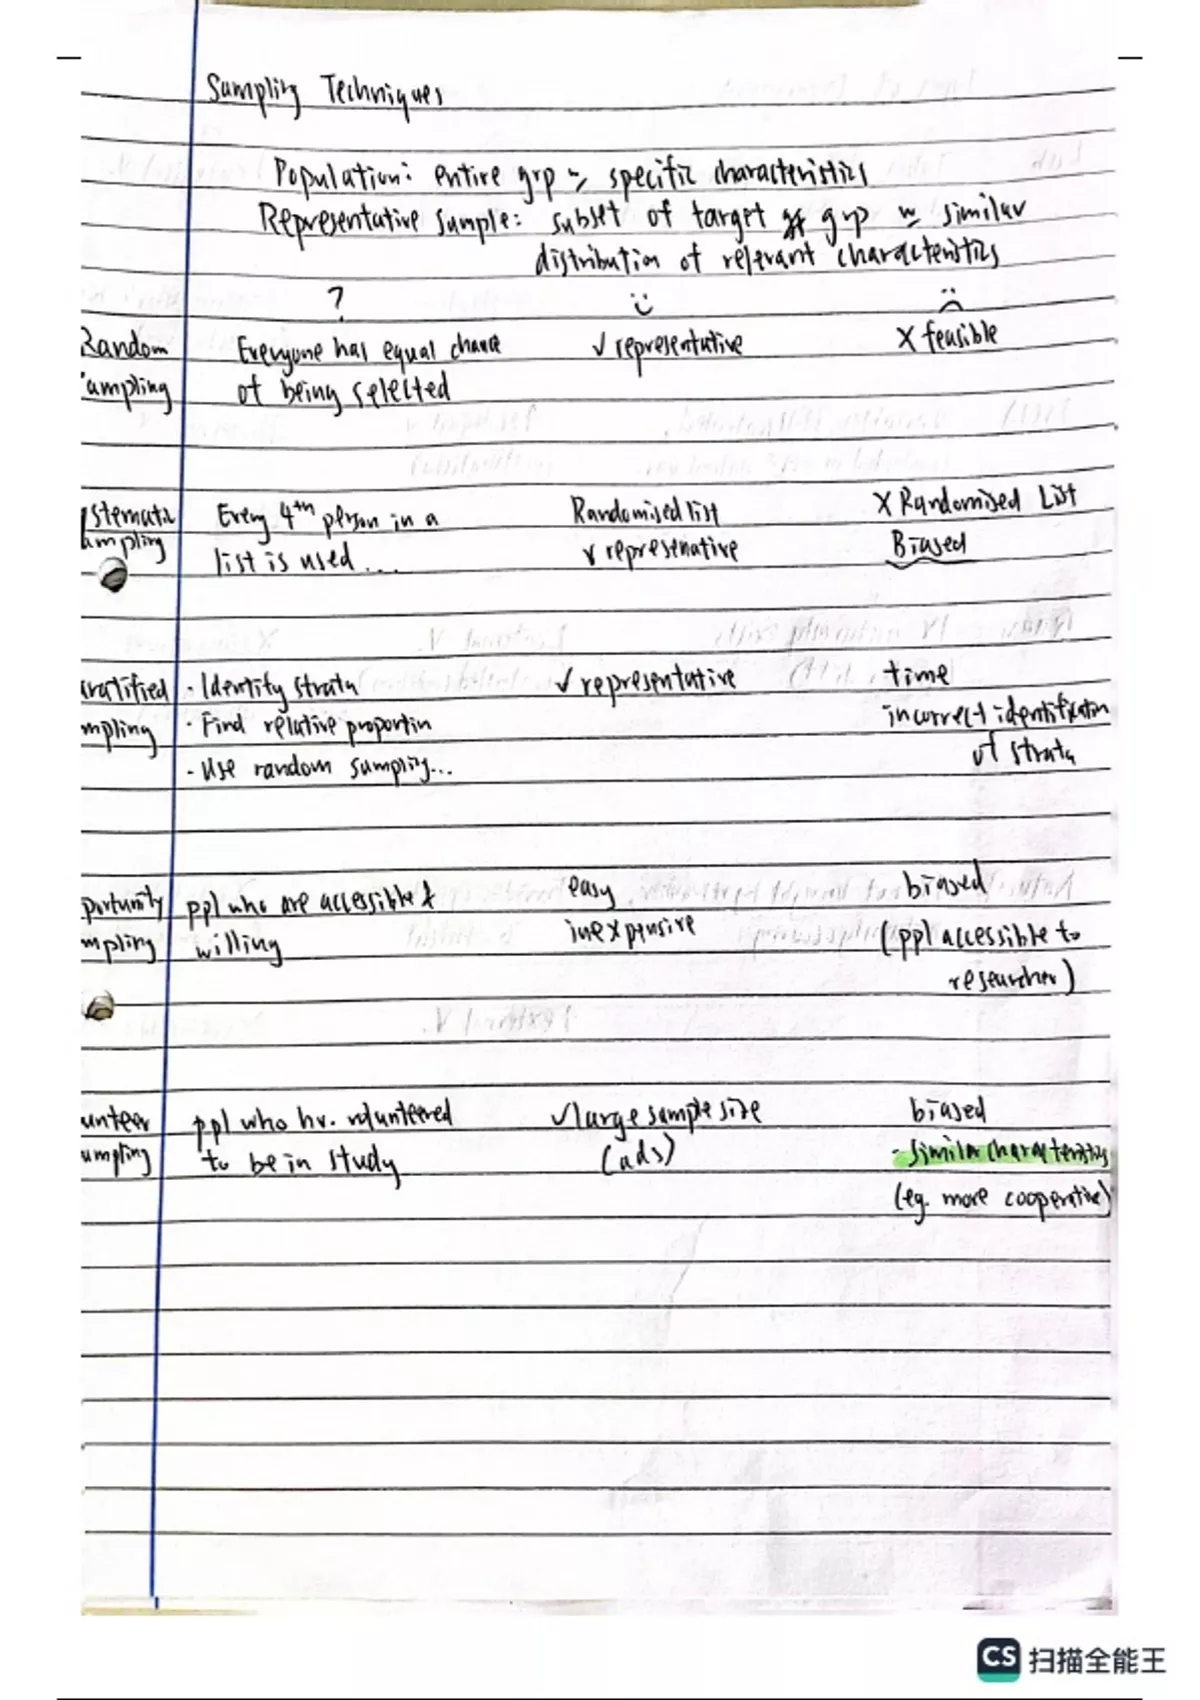 Sampling Techniques
Population: entire grp w specific characteristics
Representative sample: subset of target grp w similar
distribution of relevant characteristics
?
Random Everyone has equal chance ✓ representative X feasible
ampling of being selected
ystematic Every 4th person in a Randomised list X Randomised List
ampling list is used ... ✓ represenative Biased
ratified · Identity strata ✓ representative time
mpling · Find relative proportin incorrect identification
· Use random sampling... of strata
portunity ppl who are accessible & easy biased
mpling willing inexpensive (ppl accessible to
researcher)
unteer ppl who hv. volunteered ✓ large sample size biased
ampling to be in study (ads) - similar characteristics
(eg. more cooperative)
CS 扫描全能王